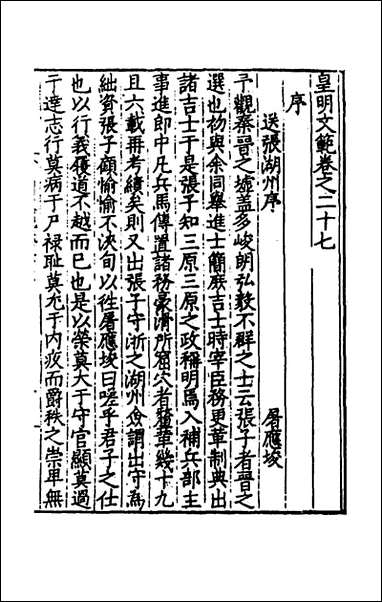 皇明文範卷之二十七
序
送張湖州序 屠應埈
予觀秦晉之墟蓋多峻朗弘毅不群之士云張子者晉之
選也始與余同舉進士簡庶吉士時宰臣務更革制典出
諸吉士于是張子知三原三原之政稱明焉入補兵部主
事進郎中凡兵馬傳置諸務豪滑所窟穴者釐革幾十九
且六載再考績矣則又出張子守浙之湖州僉謂出守為
絀資張子顧愉愉不浹旬以徃屠應埈曰嗟乎君子之仕
也以行義履道不越而已也是以榮莫大于守官顯莫過
于達志行莫病于尸祿耻莫尤于内疚而爵秩之崇卑無